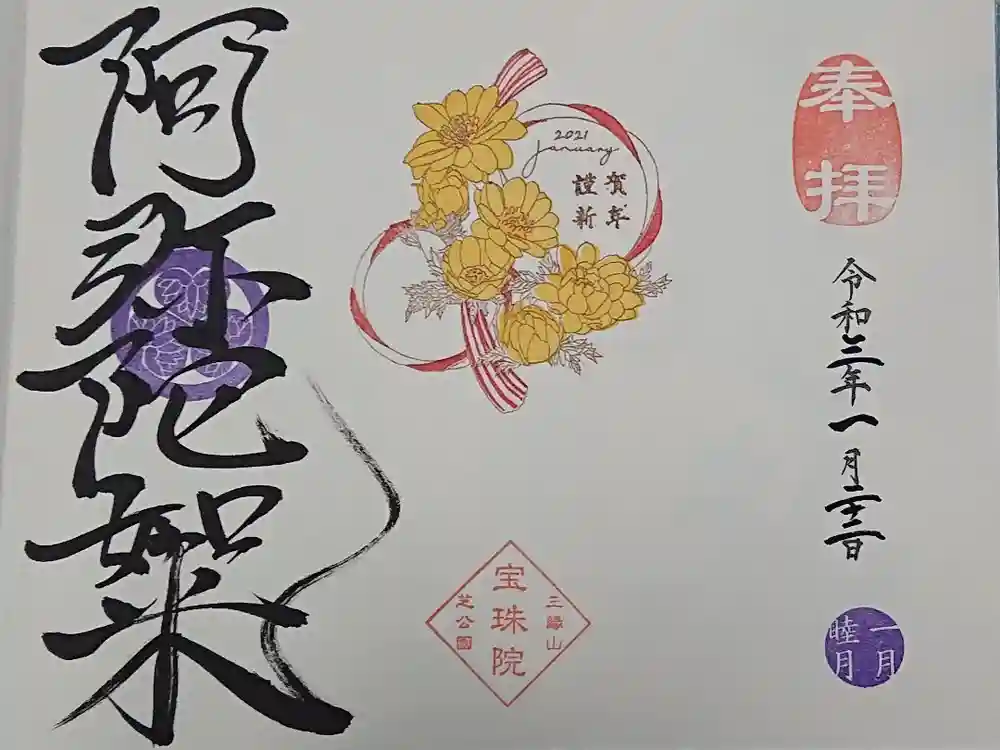 奉拝
令和三年一月二十三日
一月
睦月
2021
January
謹賀
新年
三縁山
宝珠院
芝公園
阿弥陀如来